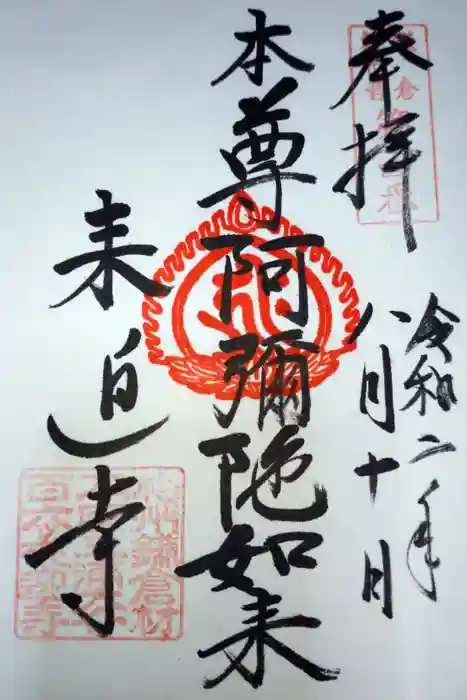 奉拝
令和二年
八月十日
本尊阿彌陀如来
来迎寺